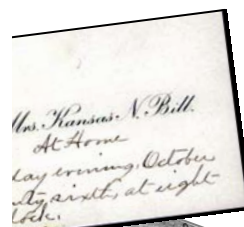 Mrs. Kansas N. Bill.
At Home
day evening, October
nty sixth, at eight
lock.